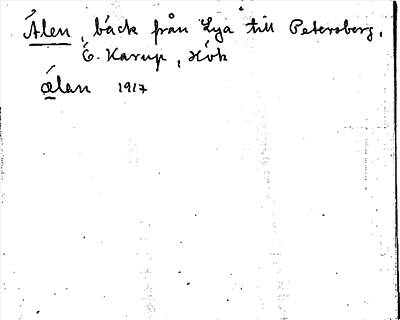 Ålen, bäck från Lya till Petersberg,
Ö. Karup, Höh
ælan 1917